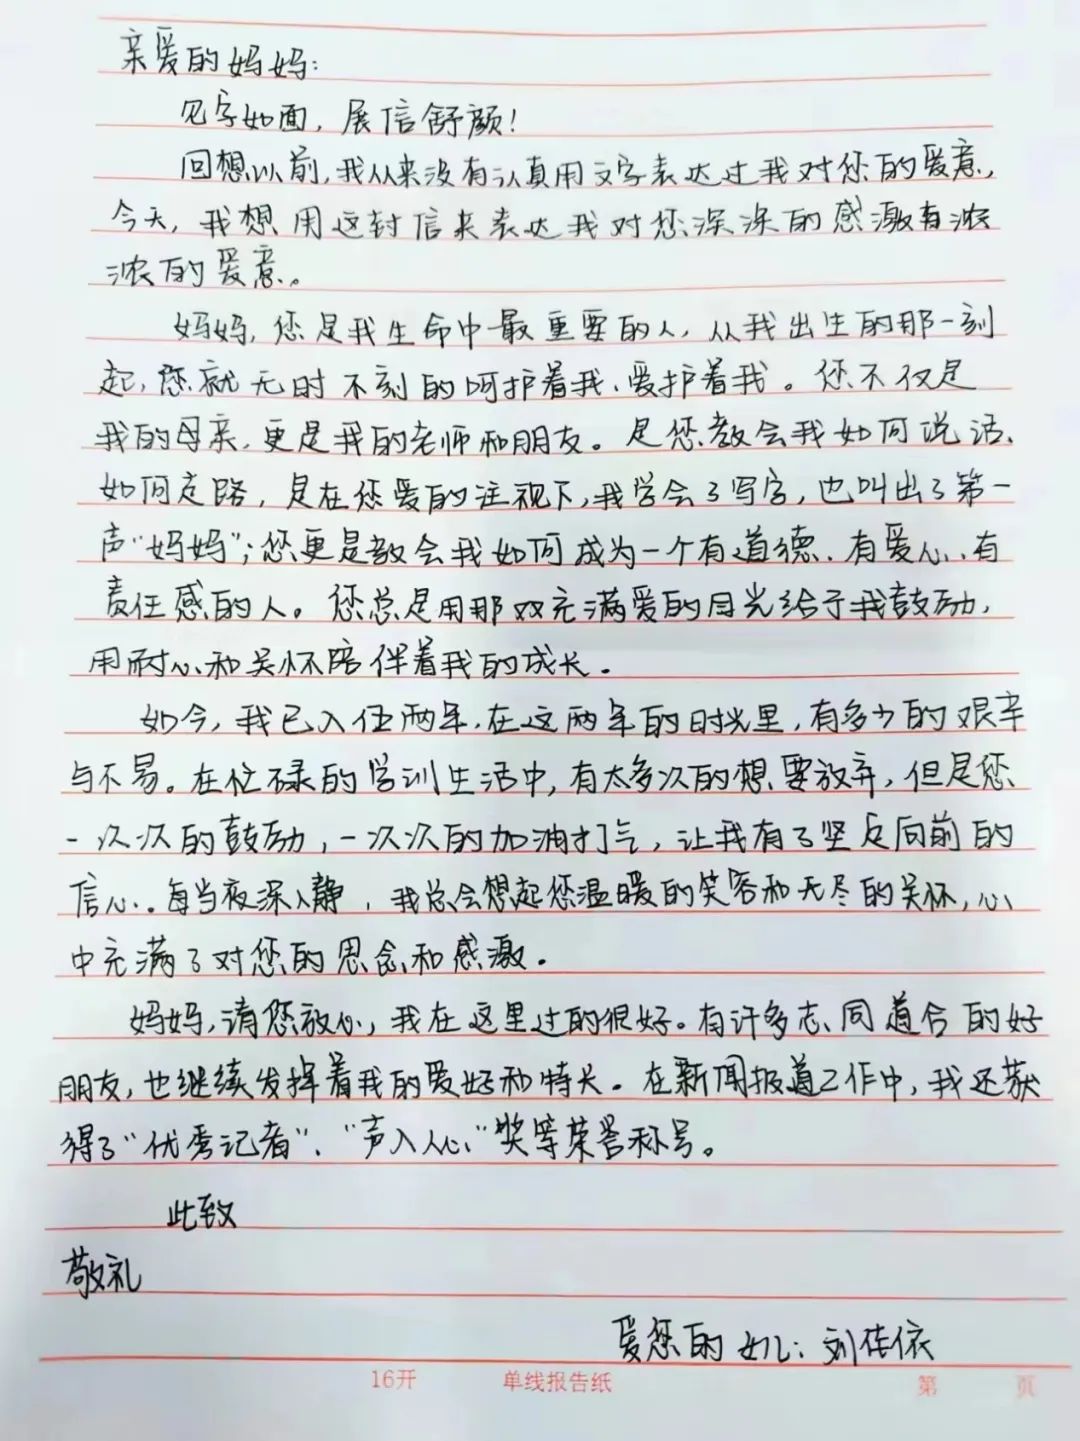 亲爱的妈妈:
见字如面，展信舒颜!
回想以前,我从来没有认真用文字表达过我对您的爱意,
今天，我想用这封信来表达我对您深深的感激有浓
浓的爱意。
妈妈，您是我生命中最重要的人，从我出生的那一刻
起，您就无时不刻的呵护着我、爱护着我。您不仅是
我的母亲，更是我的老师和朋友。是您教会我如何说话、
如何走路，是在您爱的注视下,我学会了写字，也叫出了第一
声"妈妈";您更是教会我如何成为一个有道德、有爱心、有
责任感的人。您总是用那双充满爱的目光给予我鼓励,
用耐心和关怀陪伴着我的成长。
如今，我已入伍两年，在这两年的时光里，有多少的艰辛
与不易。在忙碌的学训生活中，有太多次的想要放弃，但是您
一次次的鼓励，一次次的加油打气，让我有了坚定向前的
信心。每当夜深人静，我总会想起您温暖的笑容和无尽的关怀，心
中充满了对您的思念和感激。
妈妈,请您放心，我在这里过的很好。有许多志同道合的好
朋友，也继续发挥着我的爱好和特长。在新闻报道工作中，我还获
得了"优秀记者"、"声入人心"奖等荣誉称号。
此致
敬礼
爱您的女儿:刘佳依
16开 单线报告纸 第 页